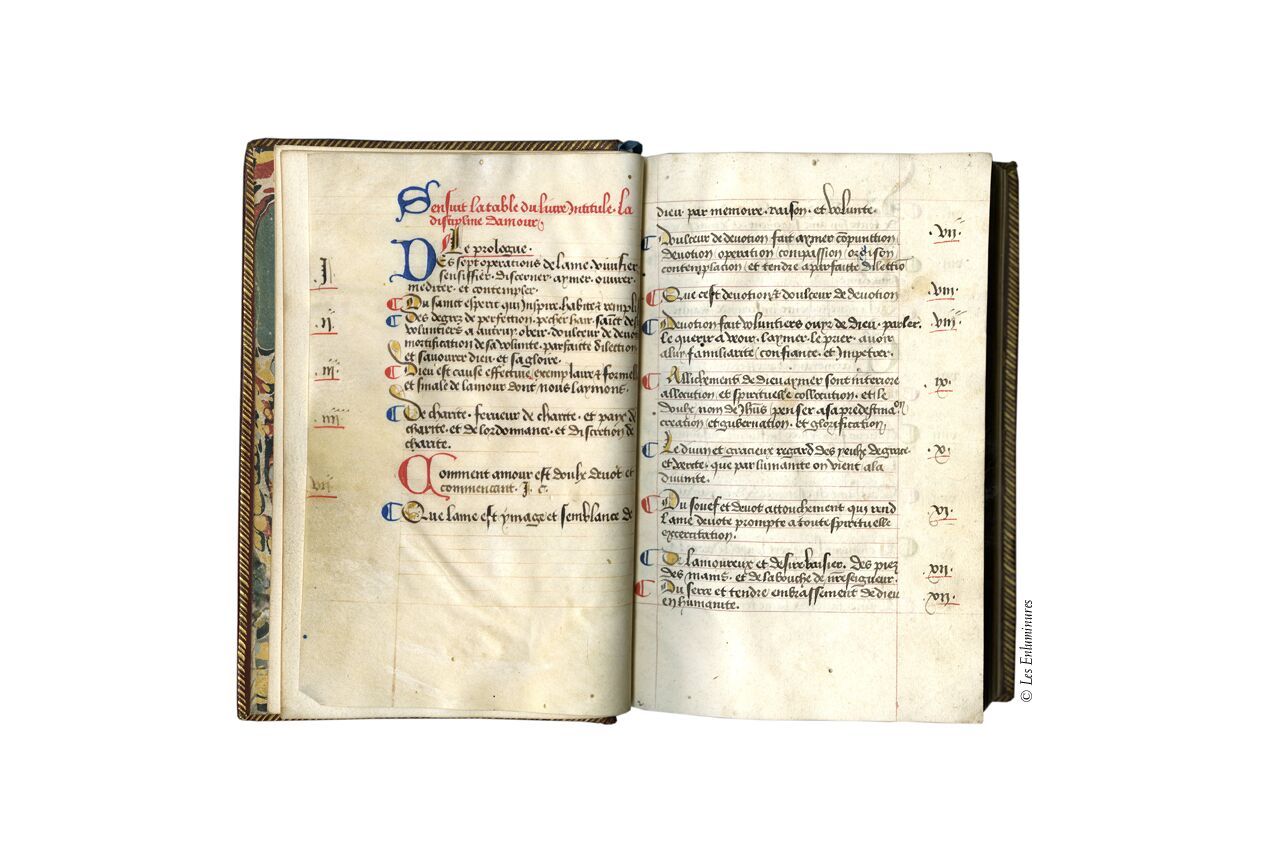 Sensuit la table du livre Intitule. La
discipline damour
Le prologue.
I
Des sept operations de lame. vivifier
sensiffier. discerner. aymer. ouvrer.
mediter. et contempler.
Du sainct esperit qui inspire. habite & rempli
.ii.
Des degrez de perfection. pecher hair.
voluntiers a aultruy obeir. doulceur de devo
mortification de sa volunte. parfaicte dilection
et savourer dieu. et sa gloire.
.iii.
Dieu est cause effective exemplaire & formel
et finale de lamour dont nous laymons.
.iiii.
De charite. ferveur de charite. et paix de
charite. et de lordonnance. et discretion de
charite.
Comment amour est doulx devot et
commencant. J. c.
.vii.
Que lame est ymage et semblance de
dieu par memoire. raison. et volunte.
.vii.
Doulceur de devotion fait aymer cõpunction
devotion operation compassion oraison
contemplation et tendre a parfaicte dilectiõ
.viii.
Que cest devotion & doulceur de devotion
.viii.
Devotion fait voluntiers ouyr de dieu. parler.
le querir a veoir. laymer. le prier. avoir
a luy familiarite. confiance. et impetrer.
.ix.
Allichemens de dieu aymer sont interiore
allocution et spirituelle collocution. et le
doulx non de Jhus penser a sa predestinaon
creation et gubernation. et glorification
.x.
Le divin et gracieux regard des yeulx de grace
et verite. que par lumanite on vient a la
divinite.
.xi.
Du souef et devot attouchement qui rend
lame devote prompte a toute spirituelle
exercitation.
.xii.
De lamoureux et desire baisier. des piez
des mains. et de la bouche de nrẽ seigneur.
.xiii.
Du serre et tendre embrassement de dieu
en humanite.
© Les Enluminures